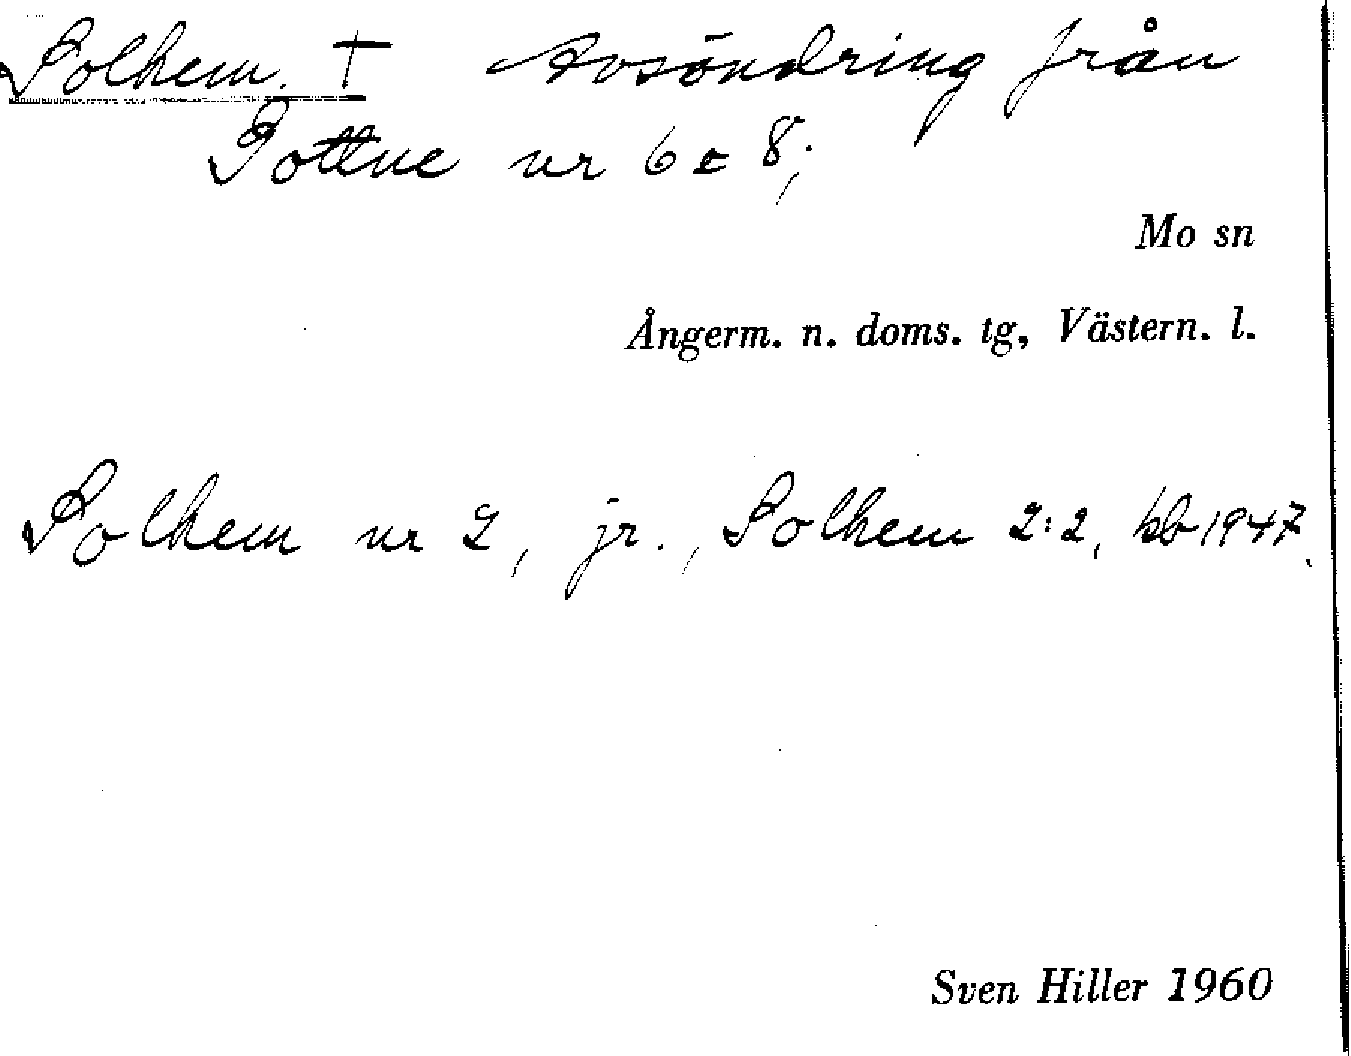 Solhem. † Avsöndring från
Gottne nr 6 o 8;
Mo sn
Ångerm. n. doms. tg, Västern. l.
Solhem nr 2, jr., Solhem 2:2, kb 1947.
Sven Hiller 1960